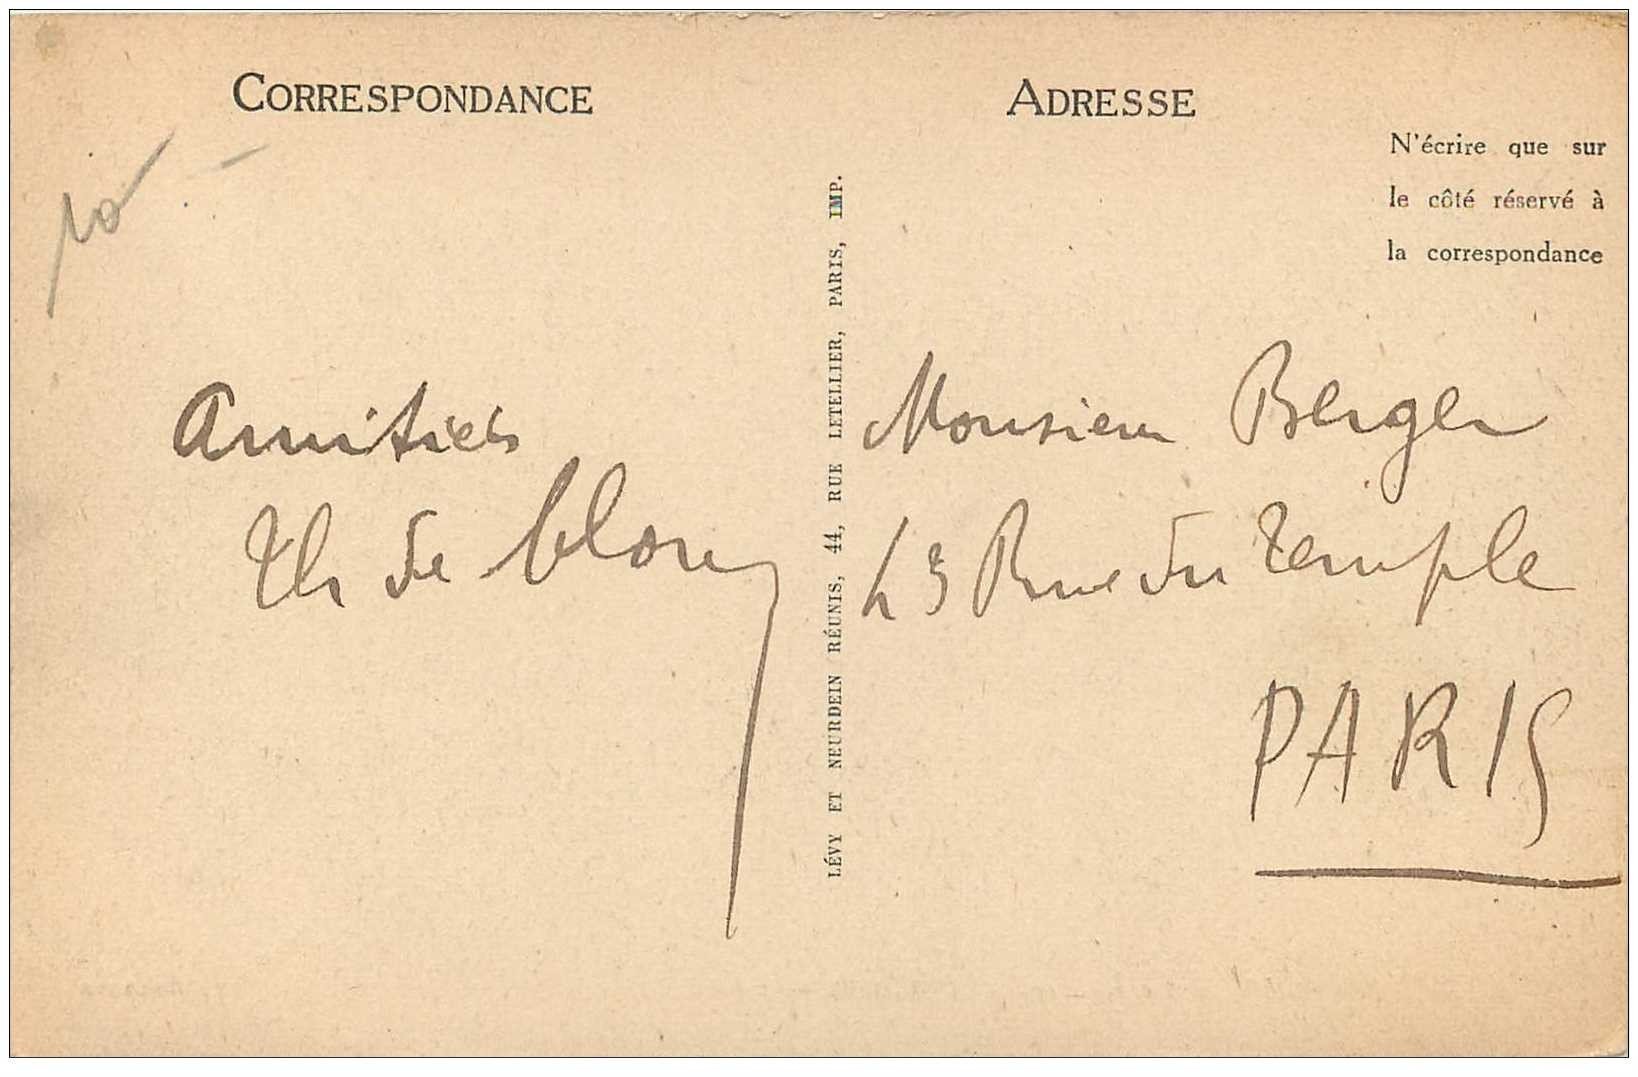 CORRESPONDANCE
10 -
Amitiés
Th de
LÉVY ET NEURDEIN RÉUNIS, 44, RUE LETELLIER, PARIS, IMP.
ADRESSE
N'écrire que sur
le côté réservé à
la correspondance
Monsieur Berger
43 Rue du Temple
PARIS